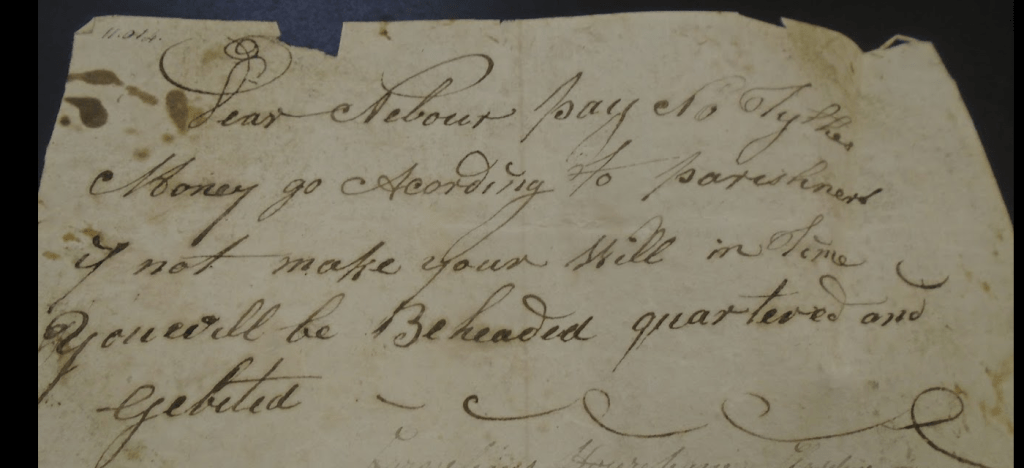 Dear Nebour pay No Tythes
Money go Acording To parishners
if not make your Will in Time
You will be Beheaded quartered and
Gebited